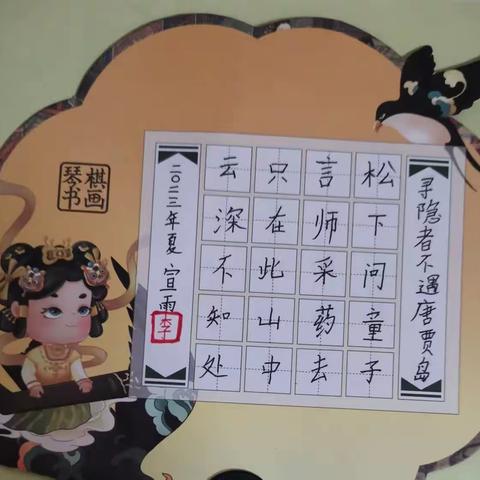 寻隐者不遇唐贾岛
松下问童子
言师采药去
只在此山中
云深不知处
二〇二三年夏宣雨
李
琴棋
书画